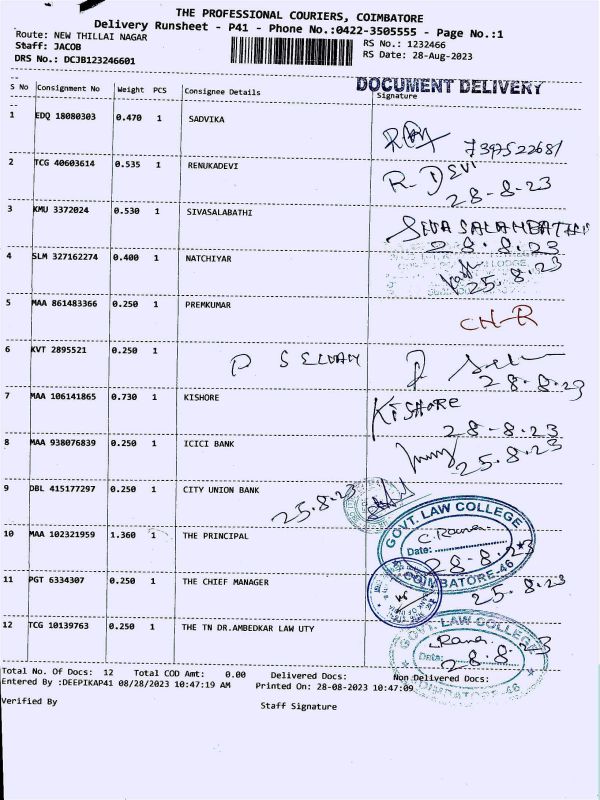 THE PROFESSIONAL COURIERS, COIMBATORE
Delivery Runsheet - P41 - Phone No.:0422-3505555 - Page No.:1
Route: NEW THILLAI NAGAR
Staff: JACOB
DRS No.: DCJB123246601
RS No.: 1232466
RS Date: 28-Aug-2023
DOCUMENT DELIVERY
S No Consignment No Weight PCS Consignee Details Signature
1 EDQ 18080303 0.470 1 SADVIKA
2 TCG 40603614 0.535 1 RENUKADEVI R. DEVI
28-8-23
3 KMU 3372024 0.530 1 SIVASALABATHI
28.8.23
4 SLM 327162274 0.400 1 NATCHIYAR
25.8.23
5 MAA 861483366 0.250 1 PREMKUMAR CH-R
6 KVT 2895521 0.250 1 P SELVAM
28.8.23
7 MAA 106141865 0.730 1 KISHORE KISHORE
28-8-23
8 MAA 938076839 0.250 1 ICICI BANK
25.8.23
9 DBL 415177297 0.250 1 CITY UNION BANK 25.8.23
10 MAA 102321959 1.360 1 THE PRINCIPAL
GOVT. LAW COLLEGE
Date:
28-8-23
COIMBATORE-46
11 PGT 6334307 0.250 1 THE CHIEF MANAGER 25.8.23
12 TCG 10139763 0.250 1 THE TN DR.AMBEDKAR LAW UTY
GOVT. LAW COLLEGE
Date:
28.8.23
COIMBATORE-46
Total No. Of Docs: 12 Total COD Amt: 0.00 Delivered Docs: Non Delivered Docs:
Entered By :DEEPIKAP41 08/28/2023 10:47:19 AM Printed On: 28-08-2023 10:47:09
Verified By Staff Signature